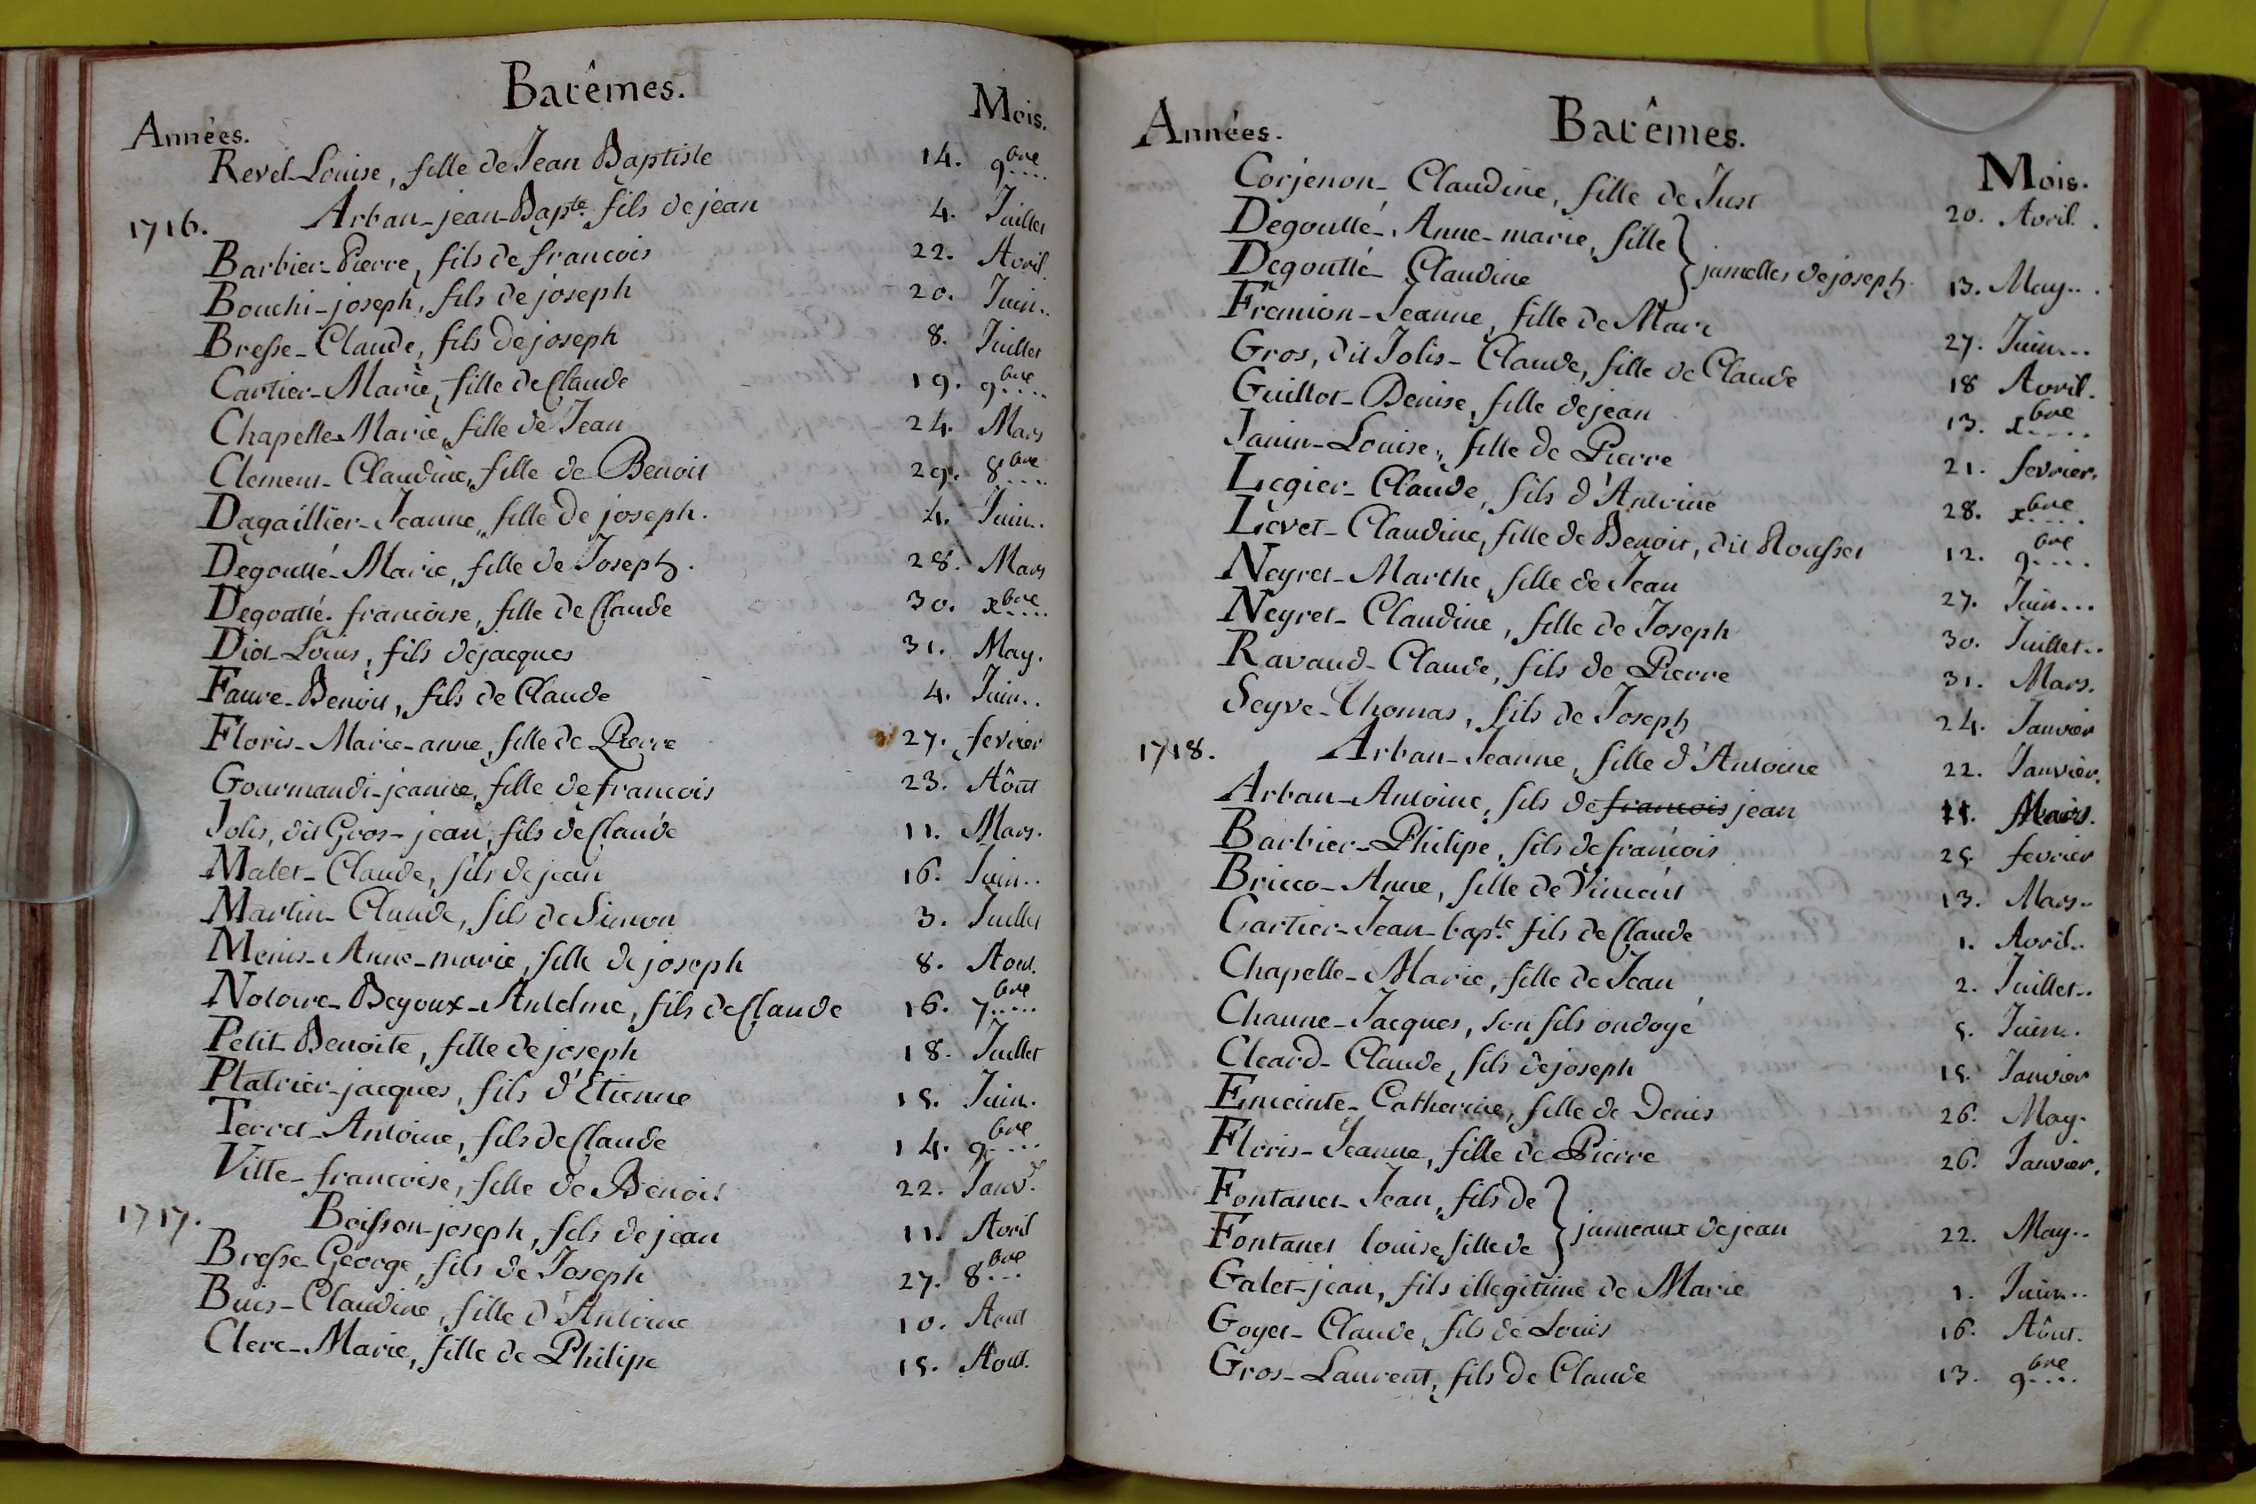 Batêmes.
Années. Mois.
Revel-Louise, fille de Jean Baptiste 14. 9bre....
1716. Arban-jean-Bapte. fils de jean 4. Juillet
Barbier-Pierre, fils de francois 22. Avril.
Bouchi-joseph, fils de joseph 20. Juin..
Bresse-Claude, fils de joseph 8. Juillet
Cartier-Marie, fille de Claude 19. 9bre....
Chapelle-Marie, fille de Jean 24. Mars
Clement-Claudine, fille de Benoit 29. 8bre....
Dagaillier-Jeanne, fille de joseph. 4. Juin..
Degoutté-Marie, fille de Joseph. 28. Mars
Degoutté. francoise, fille de Claude 30. xbre....
Diot-Louis, fils de jacques 31. May.
Faure-Benoit, fils de Claude 4. Juin..
Floris-Marie-anne, fille de Pierre 27. fevrier
Gourmandi-jeanne, fille de francois 23. Aôut
Jolis, dit Gros-jean, fils de Claude 11. Mars.
Malet-Claude, fils de jean 16. Juin..
Martin-Claude, fils de Simon 3. Juillet
Menis-Anne-marie, fille de joseph 8. Aout.
Notoire-Begoux-Antelme, fils de Claude 16. 7bre.....
Petit-Benoite, fille de joseph 18. Juillet
Platrier-jacques, fils d'Etienne 15. Juin.
Terret-Antoine, fils de Claude 14. 9bre....
Vitte-francoise, fille de Benoit 22. Janvr.
1717. Boisson-joseph, fils de jean 11. Avril
Bresse-George, fils de Joseph 27. 8bre...
Buis-Claudine, fille d'Antoine 10. Aout
Clerc-Marie, fille de Philipe 15. Aout.
Batêmes.
Années. Mois.
Corjenon-Claudine, fille de Just 20. Avril.
Degoutté-Anne-marie, fille
Degoutté-Claudine } jumelles de joseph. 13. May...
Fremion-Jeanne, fille de Marc 27. Juin...
Gros, dit Jolis-Claude, fille de Claude 18 Avril.
Guillot-Denise, fille de jean 13. xbre.....
Janin-Louise, fille de Pierre 21. fevrier.
Legier-Claude, fils d'Antoine 28. xbre....
Levet-Claudine, fille de Benoit, dit Rousset 12. 9bre....
Neyret-Marthe, fille de Jean 27. Juin...
Neyret-Claudine, fille de Joseph 30. Juillet..
Ravaud-Claude, fils de Pierre 31. Mars.
Seyve-Thomas, fils de Joseph 24. Janvier
1718. Arban-Jeanne, fille d'Antoine 22. Janvier.
Arban-Antoine, fils de francois jean Mars.
Barbier-Philipe, fils de francois 25. fevrier
Bricco-Anne, fille de Vincent 13. Mars..
Cartier-Jean-bapte. fils de Claude 1. Avril..
Chapelle-Marie, fille de Jean 2. Juillet..
Channe-Jacques, son fils ondoyé 5. Juin..
Cleard-Claude, fils de joseph 15. Janvier
Enceinte-Catherine, fille de Denis 26. May.
Floris-Jeanne, fille de Pierre 26. Janvier.
Fontanet-Jean, fils de
Fontanet louise, fille de } jumeaux de jean 22. May..
Galet-jean, fils illegitime de Marie 1. Juin..
Goyet-Claude, fils de Louis 16. Aôut.
Gros-Laurent, fils de Claude 13. 9bre....